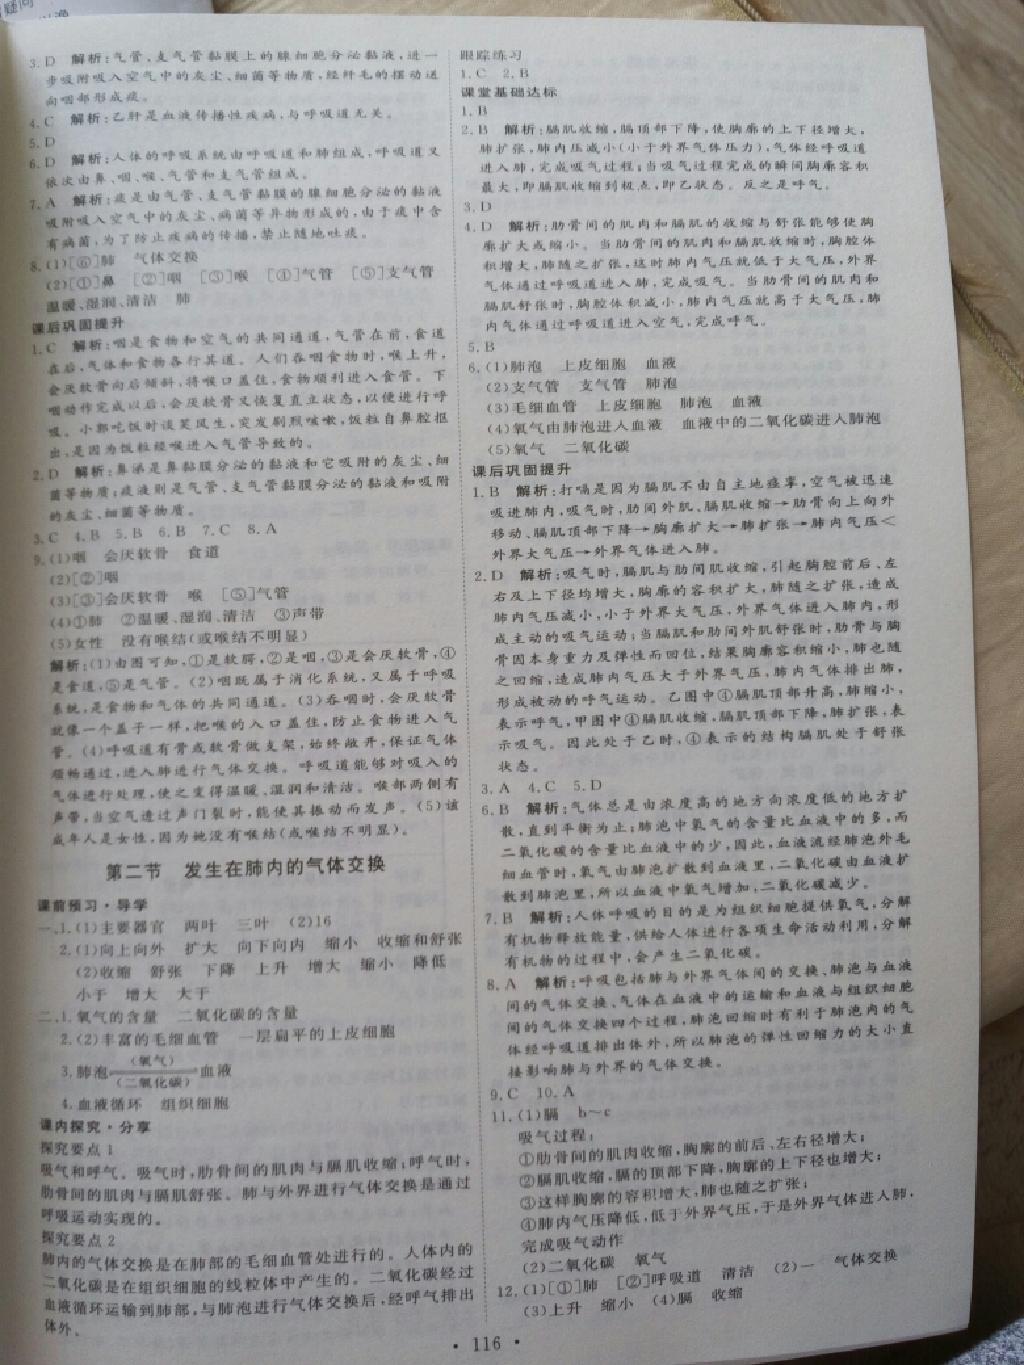 疑问
3. D　解析:气管、支气管黏膜上的腺细胞分泌黏液,进一
步吸附吸入空气中的灰尘、细菌等物质,经纤毛的摆动送
向咽部形成痰。
4. C　解析:乙肝是血液传播性疾病,与呼吸道无关。
5. D
6. D　解析:人体的呼吸系统由呼吸道和肺组成,呼吸道又
依次由鼻、咽、喉、气管和支气管组成。
7. A　解析:痰是由气管、支气管黏膜的腺细胞分泌的黏液
吸附吸入空气中的灰尘、病菌等异物形成的,由于痰中含
有病菌,为了防止疾病的传播,禁止随地吐痰。
8. (1)[⑥]肺　气体交换
(2)[①]鼻　[②]咽　[③]喉　[④]气管　[⑤]支气管
温暖、湿润、清洁　肺
课后巩固提升
1. C　解析:咽是食物和空气的共同通道,气管在前,食道
在后,气体和食物各行其道。人们吞咽食物时,喉上升,
会厌软骨向后倾斜,将喉口盖住,食物顺利进入食管。下
咽动作完成以后,会厌软骨又恢复直立状态,以便进行呼
吸。小郭吃饭时谈笑风生,突发剧烈咳嗽,饭粒自鼻腔抠
出,是因为饭粒经喉进入气管导致的。
2. D　解析:鼻涕是鼻黏膜分泌的黏液和它吸附的灰尘、细
菌等物质;痰液则是气管、支气管黏膜分泌的黏液和吸附
的灰尘、细菌等物质。
3. C　4. B　5. B　6. B　7. C　8. A
9. (1)咽　会厌软骨　食道
(2)[②]咽
(3)[③]会厌软骨　喉　[⑤]气管
(4)①肺　②温暖、湿润、清洁　③声带
(5)女性　没有喉结(或喉结不明显)
解析:(1)由图可知,①是软腭,②是咽,③是会厌软骨,④
是食道,⑤是气管。(2)咽既属于消化系统,又属于呼吸
系统,是食物和气体的共同通道。(3)吞咽时,会厌软骨
就像一个盖子一样,把喉的入口盖住,防止食物进入气
管。(4)呼吸道有骨或软骨做支架,始终敞开,保证气体
顺畅通过,进入肺进行气体交换。呼吸道能够对吸入的
气体进行处理,使之变得温暖、湿润和清洁。喉部两侧有
声带,当空气透过声门裂时,能使其振动而发声。(5)该
成年人是女性,因为她没有喉结(或喉结不明显)。
第二节　发生在肺内的气体交换
课前预习·导学
一、1. (1)主要器官　两叶　三叶　(2)16
2. (1)向上向外　扩大　向下向内　缩小　收缩和舒张
(2)收缩　舒张　下降　上升　增大　缩小　降低
小于　增大　大于
二、1. 氧气的含量　二氧化碳的含量
2. (2)丰富的毛细血管　一层扁平的上皮细胞
(氧气)
3. 肺泡　血液
(二氧化碳)
4. 血液循环　组织细胞
课内探究·分享
探究要点 1
吸气和呼气。吸气时,肋骨间的肌肉与膈肌收缩;呼气时,
肋骨间的肌肉与膈肌舒张。肺与外界进行气体交换是通过
呼吸运动实现的。
探究要点 2
肺内的气体交换是在肺部的毛细血管处进行的。人体内的
二氧化碳是在组织细胞的线粒体中产生的。二氧化碳经过
血液循环运输到肺部,与肺泡进行气体交换后,经呼气排出
体外。
跟踪练习
1. C　2. B
课堂基础达标
1. B
2. B　解析:膈肌收缩,膈顶部下降,使胸廓的上下径增大,
肺扩张,肺内压减小(小于外界气体压力),气体经呼吸道
进入肺,完成吸气过程;当吸气过程完成的瞬间胸廓容积
最大,即膈肌收缩到极点,即乙状态。反之是呼气。
3. D
4. D　解析:肋骨间的肌肉和膈肌的收缩与舒张能够使胸
廓扩大或缩小。当肋骨间的肌肉和膈肌收缩时,胸腔体
积增大,肺随之扩张,这时肺内气压就低于大气压,外界
气体通过呼吸道进入肺,完成吸气。当肋骨间的肌肉和
膈肌舒张时,胸腔体积减小,肺内气压就高于大气压,肺
内气体通过呼吸道进入空气,完成呼气。
5. B
6. (1)肺泡　上皮细胞　血液
(2)支气管　支气管　肺泡
(3)毛细血管　上皮细胞　肺泡　血液
(4)氧气由肺泡进入血液　血液中的二氧化碳进入肺泡
(5)氧气　二氧化碳
课后巩固提升
1. B　解析:打嗝是因为膈肌不由自主地痉挛,空气被迅速
吸进肺内,吸气时,肋间外肌、膈肌收缩→肋骨向上向外
移动、膈肌顶部下降→胸廓扩大→肺扩张→肺内气压<
外界大气压→外界气体进入肺。
2. D　解析:吸气时,膈肌与肋间肌收缩,引起胸腔前后、左
右及上下径均增大,胸廓的容积扩大,肺随之扩张,造成
肺内气压减小,小于外界大气压,外界气体进入肺内,形
成主动的吸气运动;当膈肌和肋间外肌舒张时,肋骨与胸
骨因本身重力及弹性而回位,结果胸廓容积缩小,肺也随
之回缩,造成肺内气压大于外界气压,肺内气体排出肺,
形成被动的呼气运动。乙图中④膈肌顶部升高,肺缩小,
表示呼气,甲图中④膈肌收缩,膈肌顶部下降,肺扩张,表
示吸气。因此处于乙时,④表示的结构膈肌处于舒张
状态。
3. A　4. C　5. D
6. B　解析:气体总是由浓度高的地方向浓度低的地方扩
散,直到平衡为止;肺泡中氧气的含量比血液中的多,而
二氧化碳的含量比血液中的少,因此,血液流经肺泡外毛
细血管时,氧气由肺泡扩散到血液里,二氧化碳由血液扩
散到肺泡里,所以血液中氧气增加,二氧化碳减少。
7. B　解析:人体呼吸的目的是为组织细胞提供氧气,分解
有机物释放能量,供给人体进行各项生命活动利用,分解
有机物的过程中,会产生二氧化碳。
8. A　解析:呼吸包括肺与外界气体间的交换、肺泡与血液
间的气体交换、气体在血液中的运输和血液与组织细胞
间的气体交换四个过程,肺泡回缩时有利于肺泡内的气
体经呼吸道排出体外,所以肺泡的弹性回缩力的大小直
接影响肺与外界的气体交换。
9. C　10. A
11. (1)膈　b～c
吸气过程:
①肋骨间的肌肉收缩,胸廓的前后、左右径增大;
②膈肌收缩,膈的顶部下降,胸廓的上下径也增大;
③这样胸廓的容积增大,肺也随之扩张;
④肺内气压降低,低于外界气压,于是外界气体进入肺,
完成吸气动作
(2)二氧化碳　氧气
12. (1)[①]肺　[②]呼吸道　清洁　(2)一　气体交换
(3)上升　缩小　(4)膈　收缩
· 116 ·